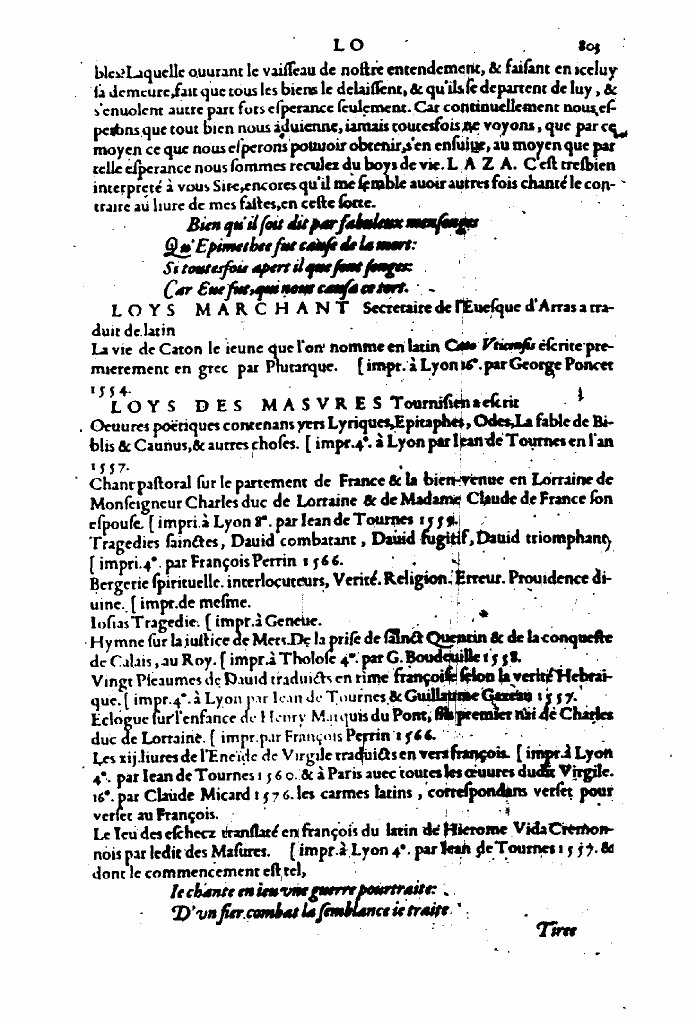 LO 803
bles? Laquelle ouurant le vaisseau de nostre entendement, & faisant en iceluy
sa demeure, fait que tous les biens le delaissent, & qu'ils se departent de luy, &
s'enuolent autre part fors esperance seulement. Car continuellement nous es-
perons que tout bien nous aduienne, iamais toutesfois ne voyons, que par ce
moyen ce que nous esperons pouuoir obtenir, s'en ensuiue, au moyen que par
telle esperance nous sommes reculez du boys de vie. LAZA. C'est tresbien
interpreté à vous Sire, encores qu'il me semble auoir autres fois chanté le con-
traire au liure de mes fastes, en ceste sorte.
Bien qu'il soit dit par fabuleux mensonges
Qu'Epimethee fut cause de la mort:
Si toutesfois apert il que sont songes:
Car Eue fut, qui nous causa ce tort.
LOYS MARCHANT Secretaire de l'Euesque d'Arras a tra-
duit de latin
La vie de Caton le ieune que l'on nomme en latin Cato Vticensis escrite pre-
mierement en grec par Plutarque. [impr. à Lyon 16°. par George Poncet
1554.
LOYS DES MASVRES Tournisien a escrit
Oeuures poëtiques contenans vers Lyriques, Epitaphes, Odes, La fable de Bi-
blis & Caunus, & autres choses. [impr. 4°. à Lyon par Iean de Tournes en l'an
1557.
Chant pastoral sur le partement de France & la bien-venue en Lorraine de
Monseigneur Charles duc de Lorraine & de Madame Claude de France son
espouse. [impri. à Lyon 8°. par Iean de Tournes 1559.
Tragedies sainctes, Dauid combatant, Dauid fugitif, Dauid triomphant,
[impri. 4°. par François Perrin 1566.
Bergerie spirituelle. interlocuteurs, Verité. Religion. Erreur. Prouidence di-
uine. [impr. de mesme.
Iosias Tragedie. [impr. à Geneue.
Hymne sur la iustice de Mets. De la prise de sainct Quentin & de la conqueste
de Calais, au Roy. [impr. à Tholose 4°. par G. Boudeuille 1558.
Vingt Pseaumes de Dauid traduicts en rime françoise selon la verité Hebrai-
que. [impr. 4°. à Lyon par Iean de Tournes & Guillaume Gazeau 1557.
Eclogue sur l'enfance de Henry Marquis du Pont, fils premier nai de Charles
duc de Lorraine. [impr. par François Perrin 1566.
Les xij. liures de l'Eneïde de Virgile traduicts en vers françois. [impr. à Lyon
4°. par Iean de Tournes 1560. & à Paris auec toutes les œuures dudit Virgile.
16°. par Claude Micard 1576. les carmes latins, correspondans verset pour
verset au François.
Le Ieu des eschecz translaté en françois du latin de Hierome Vida Cremon-
nois par ledit des Masures. [impr. à Lyon 4°. par Iean de Tournes 1557. &
dont le commencement est tel,
Ie chante en ieu vne guerre pourtraite:
D'vn fier combat la semblance ie traite
Tiree